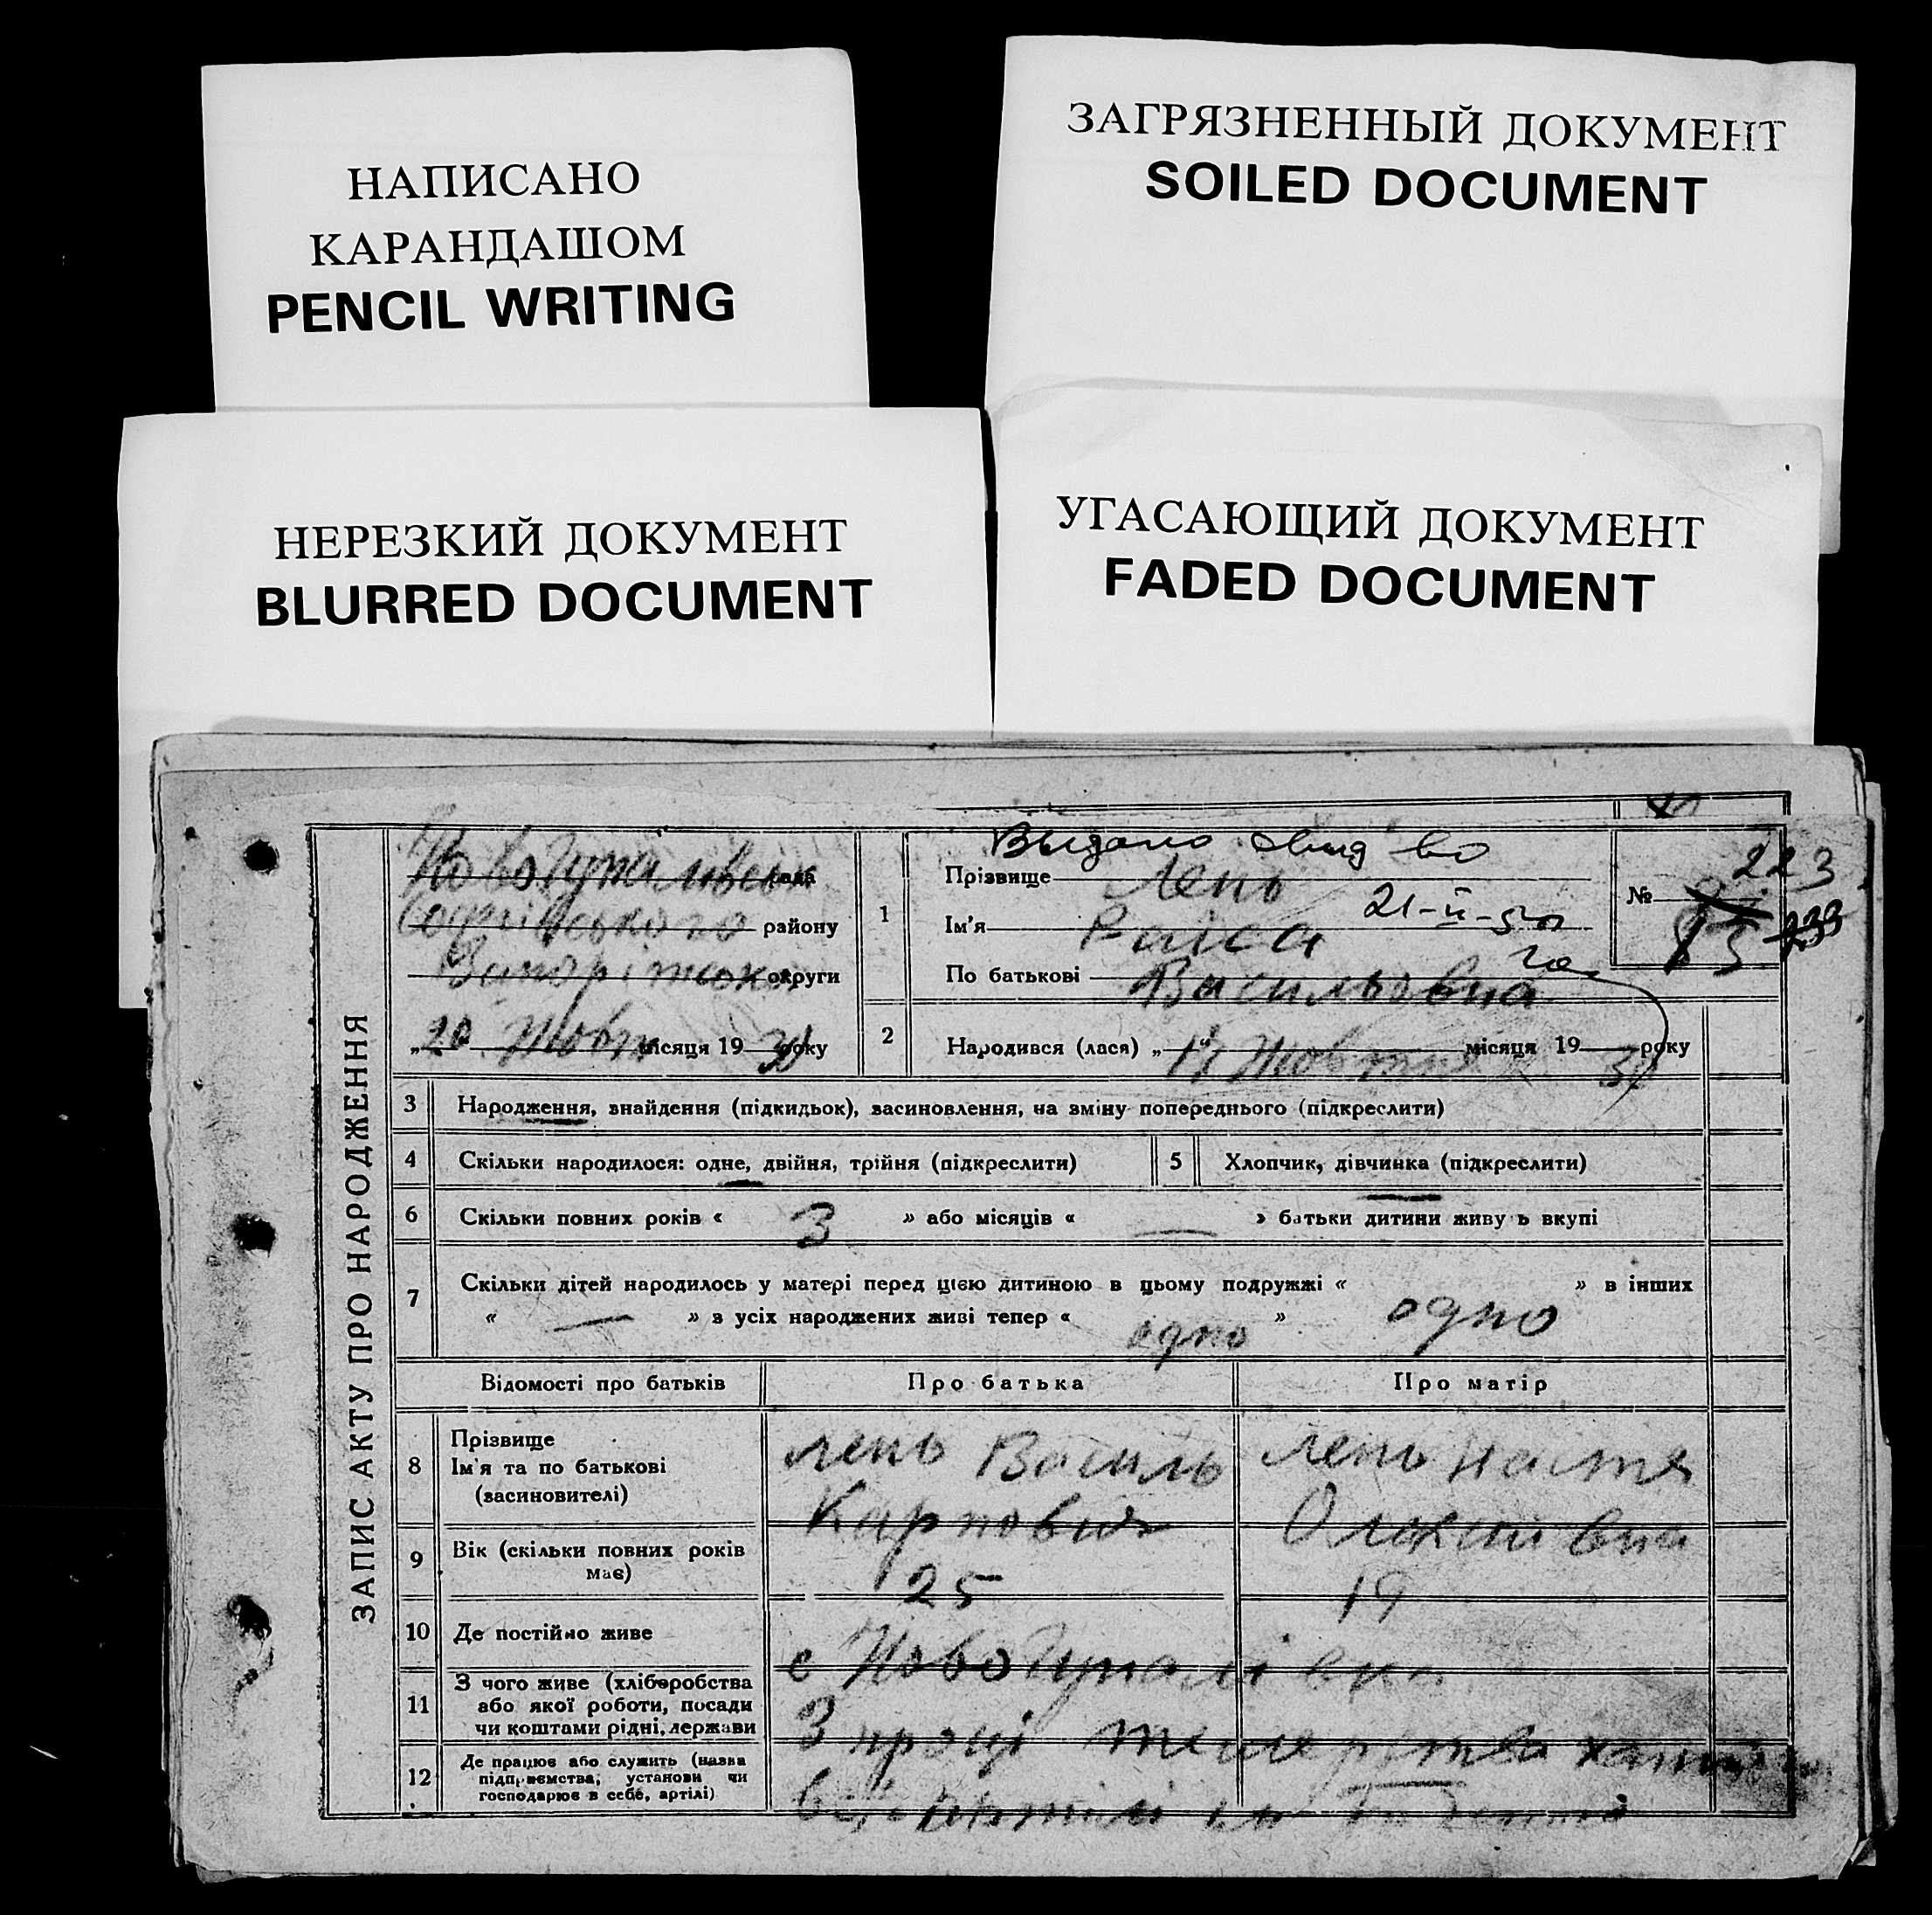 НАПИСАНО
КАРАНДАШОМ
PENCIL WRITING
ЗАГРЯЗНЕННЫЙ ДОКУМЕНТ
SOILED DOCUMENT
НЕРЕЗКИЙ ДОКУМЕНТ
BLURRED DOCUMENT
УГАСАЮЩИЙ ДОКУМЕНТ
FADED DOCUMENT
ЗАПИС АКТУ ПРО НАРОДЖЕННЯ
рада
району
округи
„20 Жовт місяця 19 30 року
Выдано
1 Прізвище Лень
Ім'я Раїса 21-II-50
По батькові Васильовна
№ 223
2 Народився (лася) „17“ Жовтня місяця 19 30 року
3 Народження, знайдення (підкидьок), засиновлення, на зміну попереднього (підкреслити)
4 Скільки народилося: одне, двійня, трійня (підкреслити)
5 Хлопчик, дівчинка (підкреслити)
6 Скільки повних років « 3 » або місяців « — » батьки дитини живуть вкупі
7 Скільки дітей народилось у матері перед цією дитиною в цьому подружжі « одно » в інших
« — » з усіх народжених живі тепер « одно »
Відомості про батьків Про батька Про матір
8 Прізвище
Ім'я та по батькові
(засиновителі)
Лень Василь
Карпович
Лень Настя
Олексіївна
9 Вік (скільки повних років
має)
25 19
10 Де постійно живе
с Новогупалівка
11 З чого живе (хліборобства
або якої роботи, посади
чи коштами рідні, держави
З праці
12 Де працює або служить (назва
підприємства, установи чи
господарює в себе, артілі)